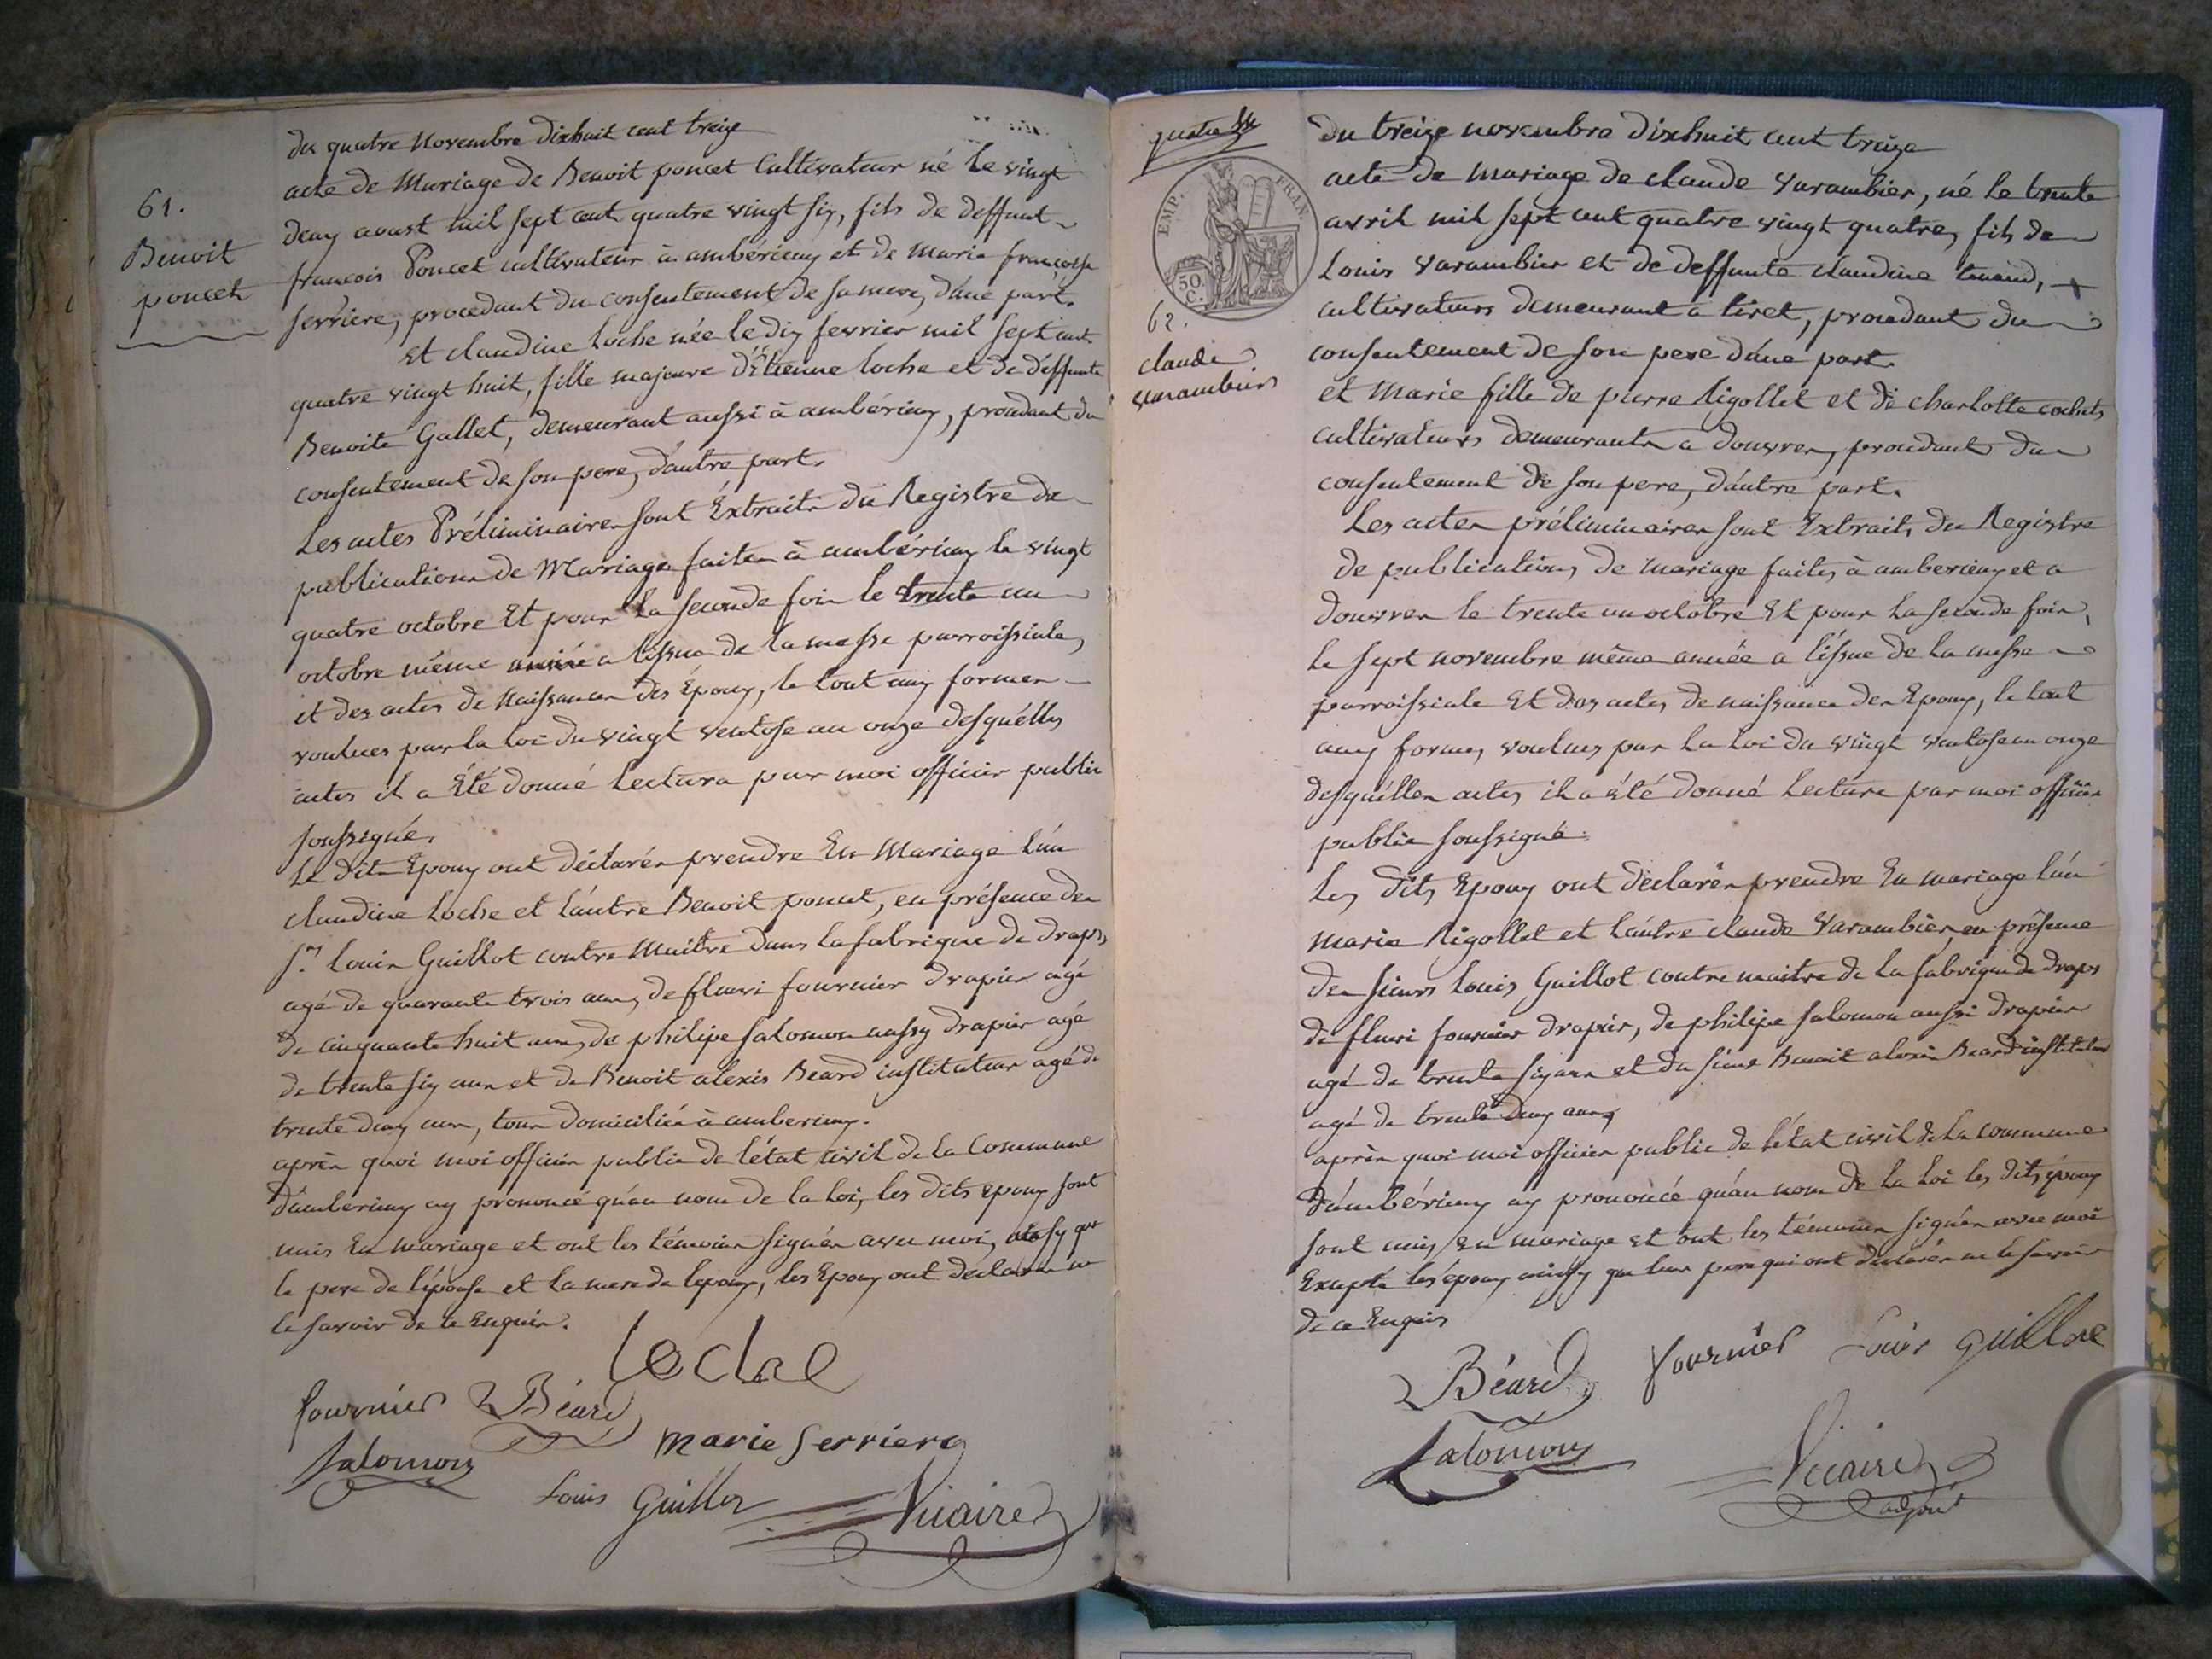 du quatre Novembre dixhuit cent treize
acte de Mariage de Benoit poncet Cultivateur né le vingt
61.
Benoit
poncet
deux aoust mil sept cent quatre vingt six, fils de deffunt
francois Poncet cultivateur à ambérieux et de marie françoise
serriere, procedant du consentement de sa mere, d'une part.
Et claudine Loche née le dix fevrier mil sept cent
quatre vingt huit, fille majeure d'Etienne Loche et de deffunte
Benoite Gallet, demeurant aussi à ambérieux, procedant du
consentement de son pere, d'autre part.
Les actes Préliminaires sont Extraits du Registre de
publications de Mariage faites à ambérieux le vingt
quatre octobre Et pour la seconde fois le trente un
octobre même année a l'issue de la messe parroissiale,
et des actes de Naissances des Epoux, le tout aux formes
voulues par la Loi du vingt ventose an onze desquelles
actes il a Eté donné Lecture par moi officier public
soussigné.
Le dits Epoux ont déclarés prendre En Mariage L'un
claudine Loche et L'autre Benoit poncet, en présence des
Srs Louis Guillot contre Maitre dans la fabrique de draps,
agé de quarante trois ans, de fleuri fournier drapier agé
de cinquante huit ans, de philipe salomon aussy drapier agé
de trente six ans et de Benoit alexis Beard instituteur agé de
trente deux ans, tous domiciliés à amberieux.
après quoi moi officier public de l'état civil de la Commune
d'amberieux ay prononcé qu'au nom de la Loi, les dits epoux sont
unis En mariage et ont les témoins signés avec moi, ainsy que
le pere de l'épouse et la mere de l'epoux, les Epoux ont declarés ne
le savoir de ce Enquis.
Loche
fournier Béard
marie serriere
Salomon
Louis Guillot
Vicaire
EMP. FRAN.
50 C.
du treize novembre dixhuit cent treize
acte de mariage de claude varambier, né le trente
avril mil sept cent quatre vingt quatre, fils de
Louis varambier et de deffunte claudine
cultivateurs demeurant a tiret, procedant du
62.
claude
varambier
consentement de son pere d'une part.
et Marie fille de pierre Rigollet et de charlotte cochets
cultivateurs demeurants a douvres, procedant du
consentement de son pere, d'autre part.
Les actes préliminaires sont Extraits du Registre
de publications de mariage faites à amberieux et a
douvres le trente un octobre Et pour la seconde fois,
le sept novembre même année a l'issue de la messe
parroissiale Et des actes de naissance des Epoux, le tout
aux formes voulues par la Loi du vingt ventose an onze
desquelles actes il a été donné Lecture par moi officier
public soussigné.
Les dits Epoux ont déclarés prendre En mariage L'un
Marie Rigollet et L'autre claude varambier, en présence
des sieurs Louis Guillot contre maitre de la fabrique de draps
de fleuri fournier drapier, de philipe salomon aussi drapier
agé de trente six ans et du sieur Benoit alexis Beard instituteur
agé de trente deux ans
après quoi moi officier public de l'état civil de la commune
d'ambérieux ay prononcé qu'au nom de la Loi les dits époux
sont unis en mariage et ont les témoins signés avec moi
Excepté les époux ainsy que leur pere qui ont declarés ne le savoir
de ce Enquis
Béard fournier Louis guillot
Salomon
Vicaire
adjoint